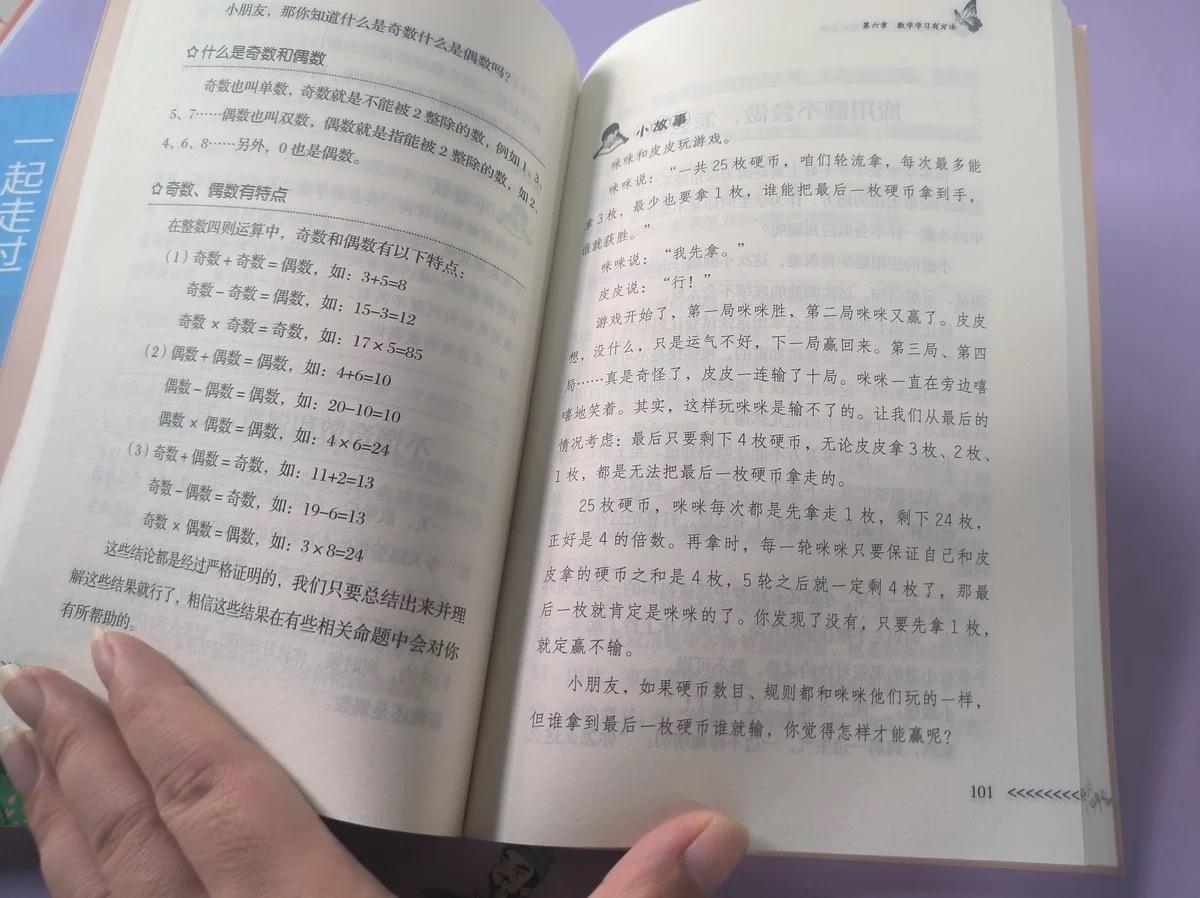 一起走过
小朋友，那你知道什么是奇数什么是偶数吗？
☆什么是奇数和偶数
奇数也叫单数，奇数就是不能被2整除的数，例如1、3、
5、7……偶数也叫双数，偶数就是指能被2整除的数，如2、
4、6、8……另外，0也是偶数。
☆奇数、偶数有特点
在整数四则运算中，奇数和偶数有以下特点：
（1）奇数+奇数=偶数，如：3+5=8
奇数－奇数=偶数，如：15–3=12
奇数×奇数=奇数，如：17×5=85
（2）偶数+偶数=偶数，如：4+6=10
偶数－偶数=偶数，如：20–10=10
偶数×偶数=偶数，如：4×6=24
（3）奇数+偶数=奇数，如：11+2=13
奇数－偶数=奇数，如：19–6=13
奇数×偶数=偶数，如：3×8=24
这些结论都是经过严格证明的，我们只要总结出来并理
解这些结果就行了，相信这些结果在有些相关命题中会对你
有所帮助的。
第六章 数学学习有方法
小故事
咪咪和皮皮玩游戏。
咪咪说：“一共25枚硬币，咱们轮流拿，每次最多能
拿3枚，最少也要拿1枚，谁能把最后一枚硬币拿到手，
谁就获胜。”
咪咪说：“我先拿。”
皮皮说：“行！”
游戏开始了，第一局咪咪胜，第二局咪咪又赢了。皮皮
想，没什么，只是运气不好，下一局赢回来。第三局、第四
局……真是奇怪了，皮皮一连输了十局。咪咪一直在旁边嘻
嘻地笑着。其实，这样玩咪咪是输不了的。让我们从最后的
情况考虑：最后只要剩下4枚硬币，无论皮皮拿3枚、2枚、
1枚，都是无法把最后一枚硬币拿走的。
25枚硬币，咪咪每次都是先拿走1枚，剩下24枚，
正好是4的倍数。再拿时，每一轮咪咪只要保证自己和皮
皮拿的硬币之和是4枚，5轮之后就一定剩4枚了，那最
后一枚就肯定是咪咪的了。你发现了没有，只要先拿1枚，
就定赢不输。
小朋友，如果硬币数目、规则都和咪咪他们玩的一样，
但谁拿到最后一枚硬币谁就输，你觉得怎样才能赢呢？
101 <<<<<<<<